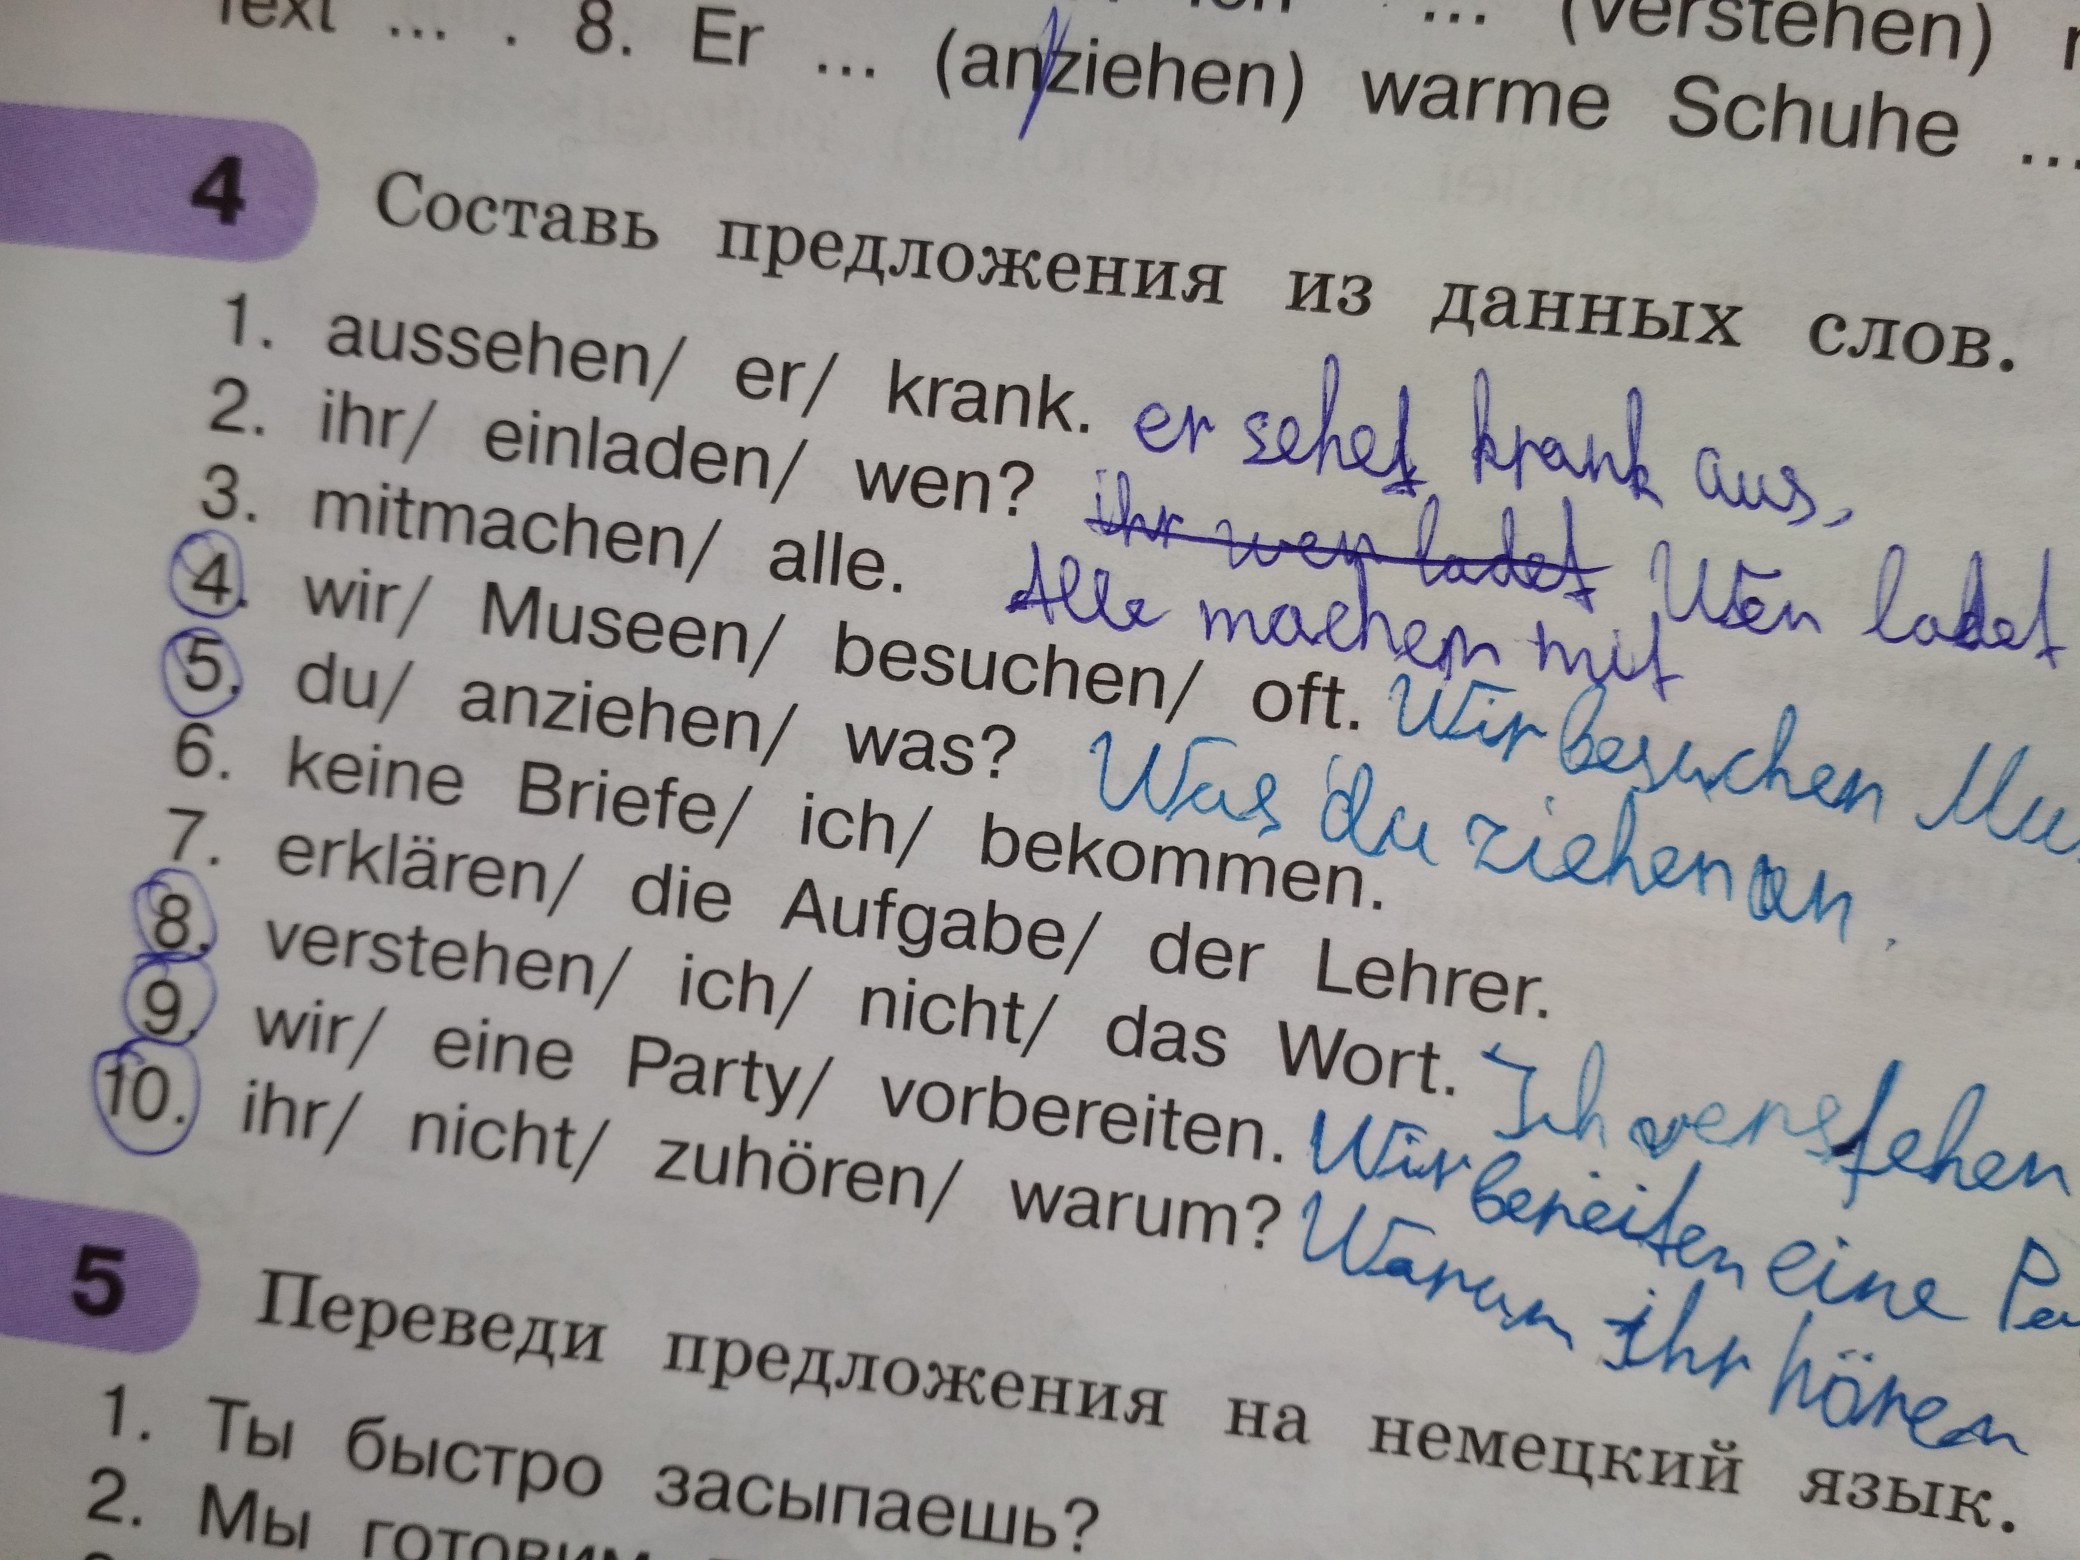 Text ... . 8. Er ... (anziehen) warme Schuhe ...
... (verstehen)
4 Составь предложения из данных слов.
1. aussehen/ er/ krank. er sehet krank aus.
2. ihr/ einladen/ wen? ihr wen ladet Wen ladet
3. mitmachen/ alle. Alle machen mit
4. wir/ Museen/ besuchen/ oft. Wir besuchen Mu
5. du/ anziehen/ was? Was du ziehen an.
6. keine Briefe/ ich/ bekommen.
7. erklären/ die Aufgabe/ der Lehrer.
8. verstehen/ ich/ nicht/ das Wort. Ich verstehen
9. wir/ eine Party/ vorbereiten. Wir bereiten eine Pa
10. ihr/ nicht/ zuhören/ warum? Warum ihr hören
5 Переведи предложения на немецкий язык.
1. Ты быстро засыпаешь?
2. Мы готовим